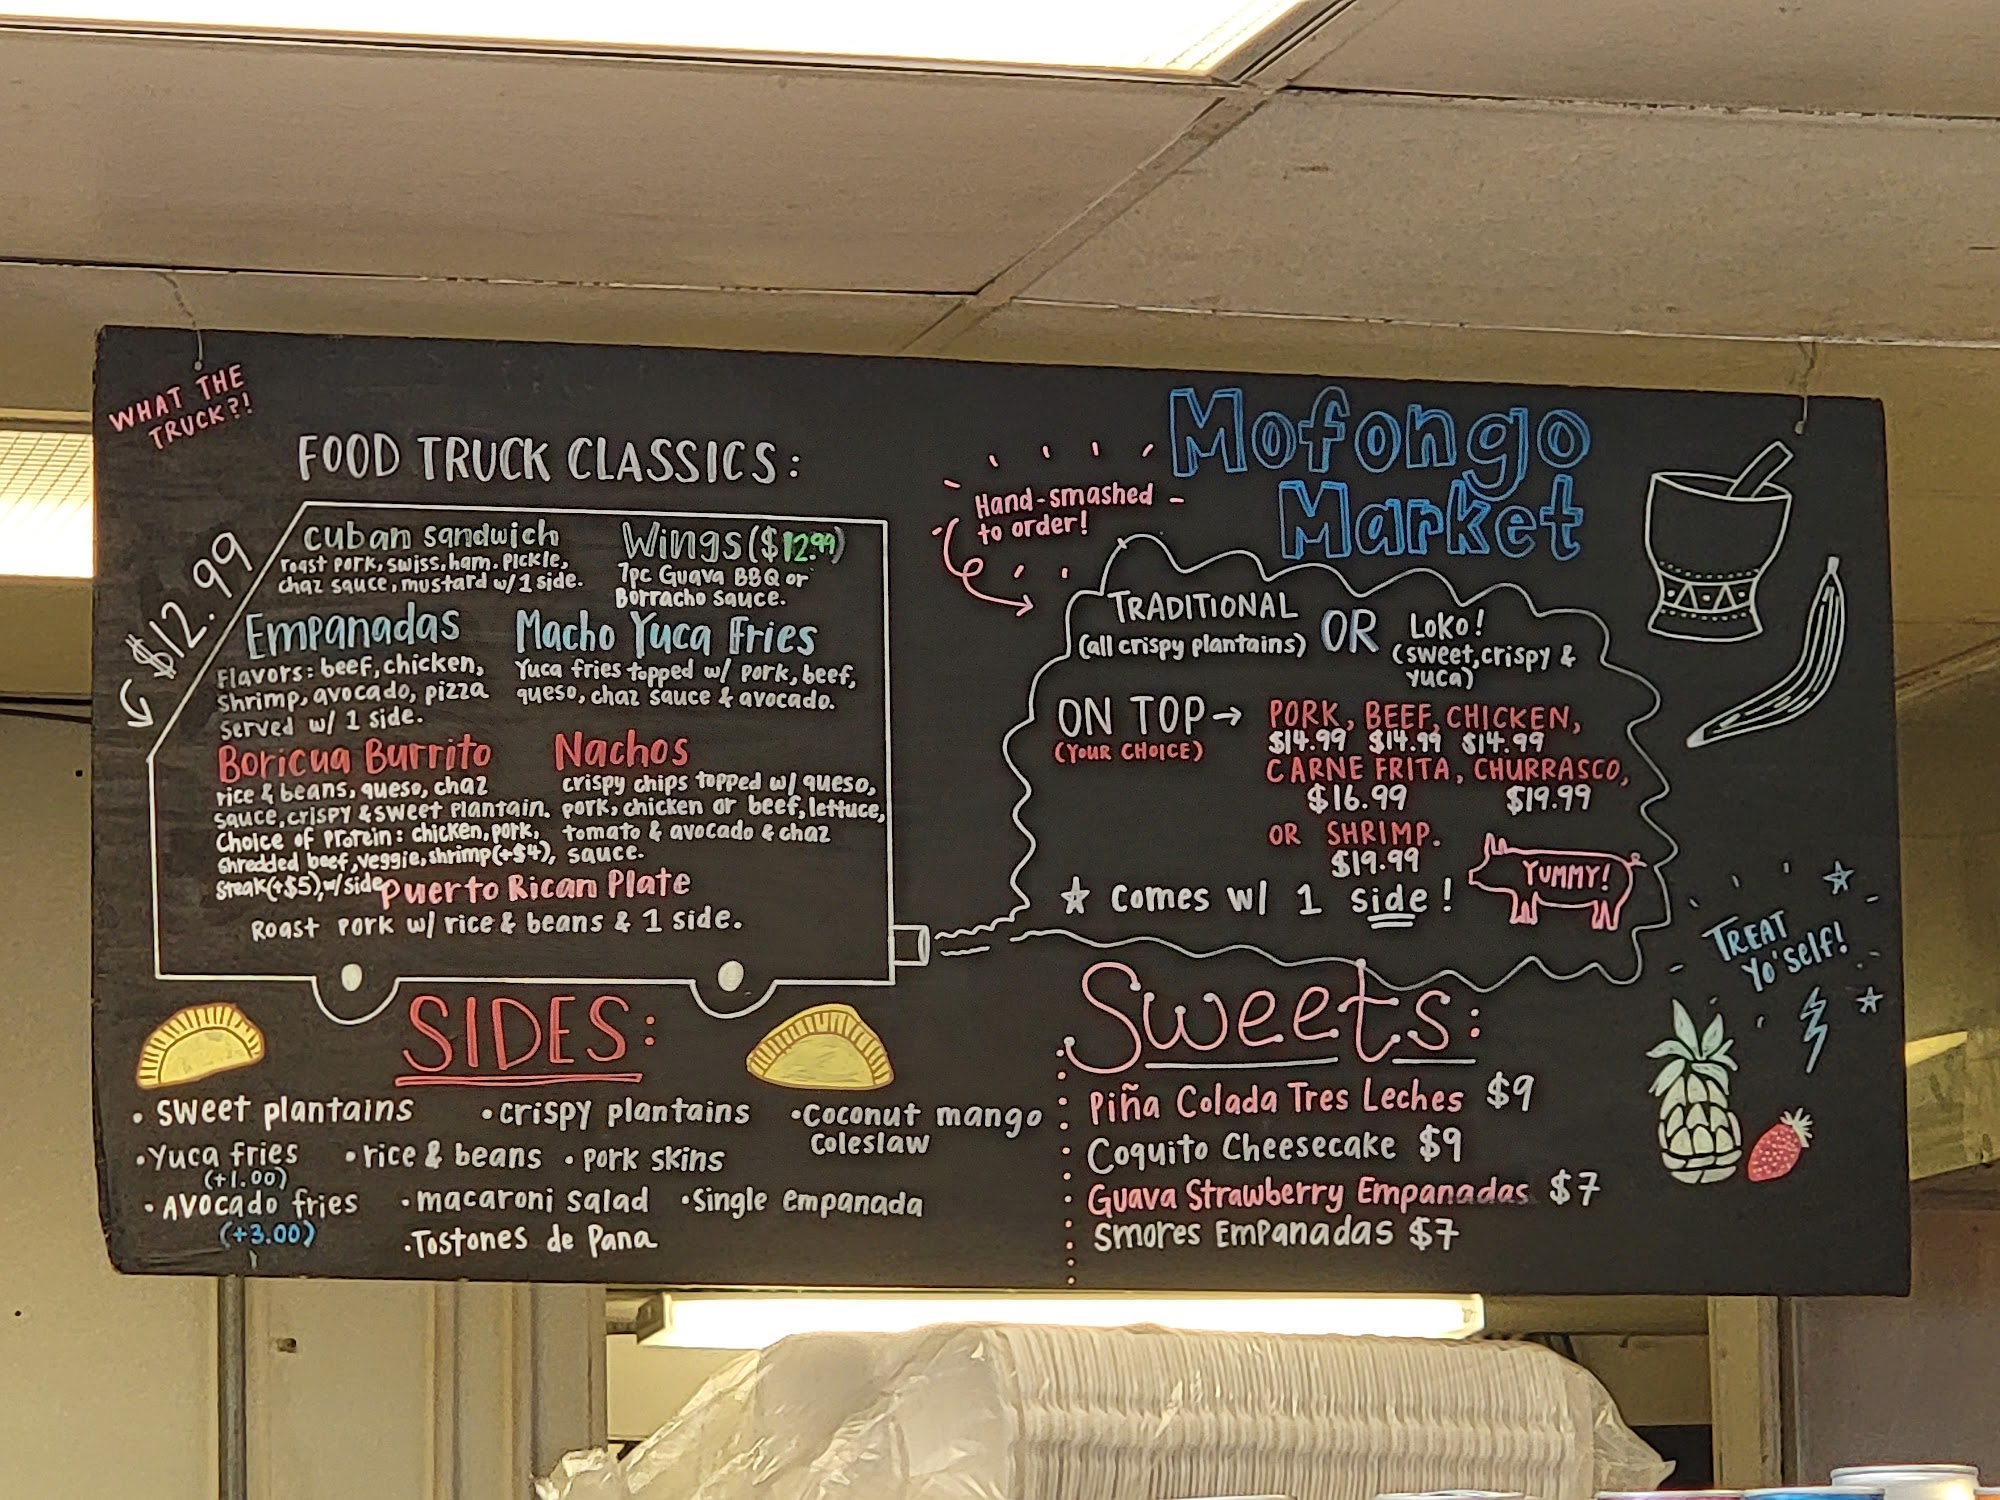 WHAT THE
TRUCK?!
FOOD TRUCK CLASSICS:
$12.99
Cuban Sandwich
roast pork, swiss, ham. pickle,
chaz sauce, mustard w/ 1 side.
Wings ($12.99)
7pc Guava BBQ or
Borracho sauce.
Empanadas
Flavors: beef, chicken,
shrimp, avocado, pizza
served w/ 1 side.
Macho Yuca Fries
Yuca fries topped w/ pork, beef,
queso, chaz sauce & avocado.
Boricua Burrito
rice & beans, queso, chaz
sauce, crispy & sweet plantain.
Choice of Protein: chicken, pork,
shredded beef, veggie, shrimp (+$4),
steak (+$5), w/ side
Nachos
crispy chips topped w/ queso,
pork, chicken or beef, lettuce,
tomato & avocado & chaz
sauce.
Puerto Rican Plate
Roast pork w/ rice & beans & 1 side.
SIDES:
• sweet plantains
• crispy plantains
• Coconut mango
coleslaw
• Yuca fries
(+1.00)
• rice & beans
• pork skins
• Avocado fries
(+3.00)
• macaroni salad
• Single empanada
• Tostones de Pana
Mofongo
Market
Hand-smashed
to order!
TRADITIONAL
(all crispy plantains)
OR
Loko!
(sweet, crispy &
yuca)
ON TOP →
(YOUR CHOICE)
PORK, BEEF, CHICKEN,
$14.99 $14.99 $14.99
CARNE FRITA, CHURRASCO,
$16.99 $19.99
OR SHRIMP.
$19.99
☆ Comes w/ 1 side!
YUMMY!
TREAT
Yo'self!
Sweets:
Piña Colada Tres Leches $9
Coquito Cheesecake $9
Guava Strawberry Empanadas $7
Smores Empanadas $7